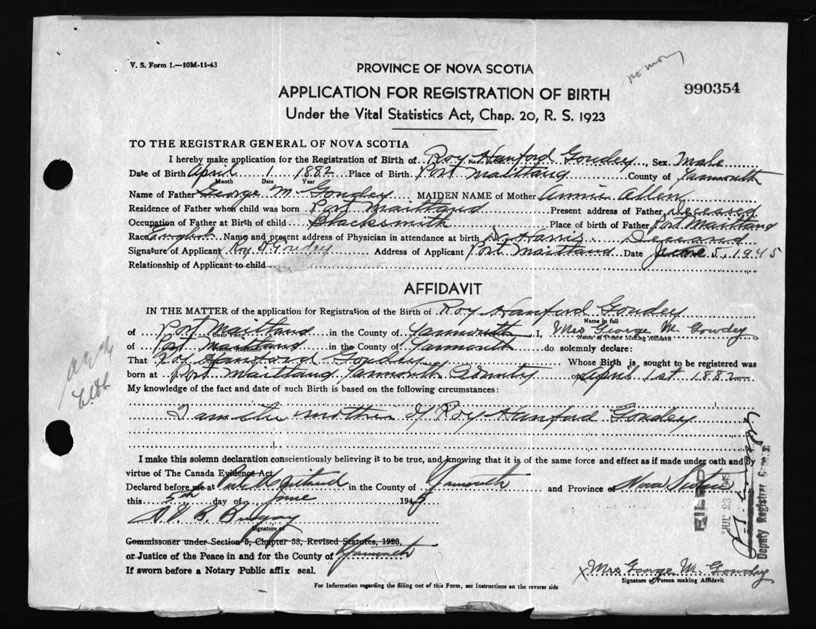 V. S. Form 1.—10M-11-43
PROVINCE OF NOVA SCOTIA
no mony
990354
APPLICATION FOR REGISTRATION OF BIRTH
Under the Vital Statistics Act, Chap. 20, R. S. 1923
TO THE REGISTRAR GENERAL OF NOVA SCOTIA
I hereby make application for the Registration of Birth of Roy Hanford Goudey, Sex Male
Date of Birth April 1 1882 Place of Birth Port Maitland County of Yarmouth
Month Day Year
Name of Father George M Goudey MAIDEN NAME of Mother Annie Allen
Residence of Father when child was born Port Maitland Present address of Father deceased
Occupation of Father at Birth of child Blacksmith Place of birth of Father Port Maitland
Race English Name and present address of Physician in attendance at birth Dr Harris Deceased
Signature of Applicant Roy H Goudey Address of Applicant Port Maitland Date June 5, 1945
Relationship of Applicant to child
AFFIDAVIT
IN THE MATTER of the application for Registration of the Birth of Roy Hanford Goudey
Name in full
of Port Maitland in the County of Yarmouth I, Mrs George M. Gowdey
Name of Person making Affidavit
of Port Maitland in the County of Yarmouth do solemnly declare:
That Roy Hanford Goudey Whose Birth is sought to be registered was
born at Port Maitland Yarmouth County April 1st 1882
My knowledge of the fact and date of such Birth is based on the following circumstances:
I am the mother of Roy Hanford Goudey
I make this solemn declaration conscientiously believing it to be true, and knowing that it is of the same force and effect as if made under oath and by
virtue of The Canada Evidence Act.
Declared before me at Port Maitland in the County of Yarmouth and Province of Nova Scotia
this 5th day of June 1945
Signature of
Commissioner under Section 5, Chapter 38, Revised Statutes, 1923,
or Justice of the Peace in and for the County of Yarmouth
If sworn before a Notary Public affix seal.
x Mrs George M. Gowdey
Signature of Person making Affidavit
For Information regarding the filling out of this Form, see Instructions on the reverse side
FILED
JUL 23
Deputy Registrar General